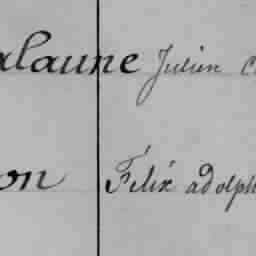 alaune Julien C
on Félix adolph